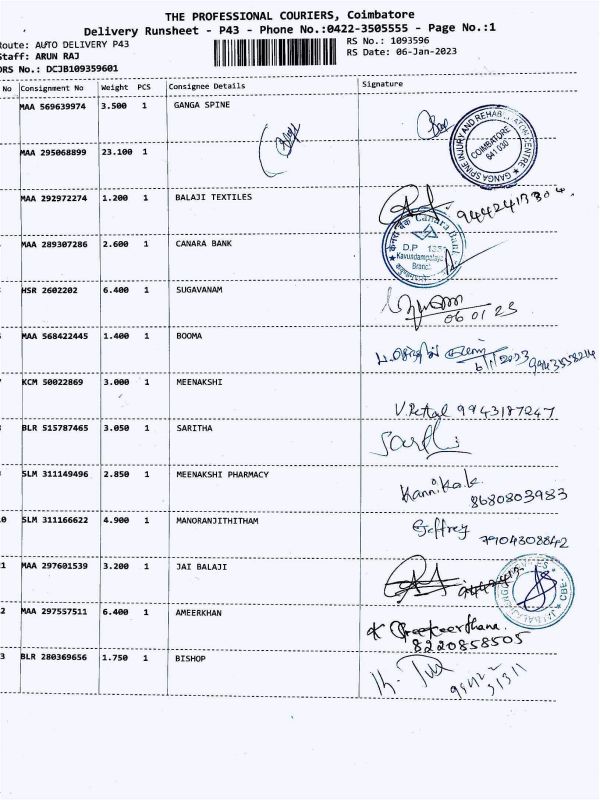 THE PROFESSIONAL COURIERS, Coimbatore
Delivery Runsheet - P43 - Phone No.:0422-3505555 - Page No.:1
Route: AUTO DELIVERY P43
RS No.: 1093596
Staff: ARUN RAJ
RS Date: 06-Jan-2023
DRS No.: DCJB109359601
No Consignment No Weight PCS Consignee Details Signature
MAA 569639974 3.500 1 GANGA SPINE
GANGA SPINE INJURY AND REHAB CENTRE
COIMBATORE
641 030
MAA 295068899 23.100 1
MAA 292972274 1.200 1 BALAJI TEXTILES
Canara Bank
MAA 289307286 2.600 1 CANARA BANK
D.P
Kavundampalayam
Branch
HSR 2602202 6.400 1 SUGAVANAM
06 01 23
MAA 568422445 1.400 1 BOOMA
6/1/2023
KCM 50022869 3.000 1 MEENAKSHI
9943187247
BLR 515787465 3.050 1 SARITHA
SLM 311149496 2.850 1 MEENAKSHI PHARMACY
Kannikala.
8680803983
0 SLM 311166622 4.900 1 MANORANJITHITHAM
Jeffrey
7904308842
1 MAA 297601539 3.200 1 JAI BALAJI
2 MAA 297557511 6.400 1 AMEERKHAN
Sreekeerthana.
8220858505
3 BLR 280369656 1.750 1 BISHOP